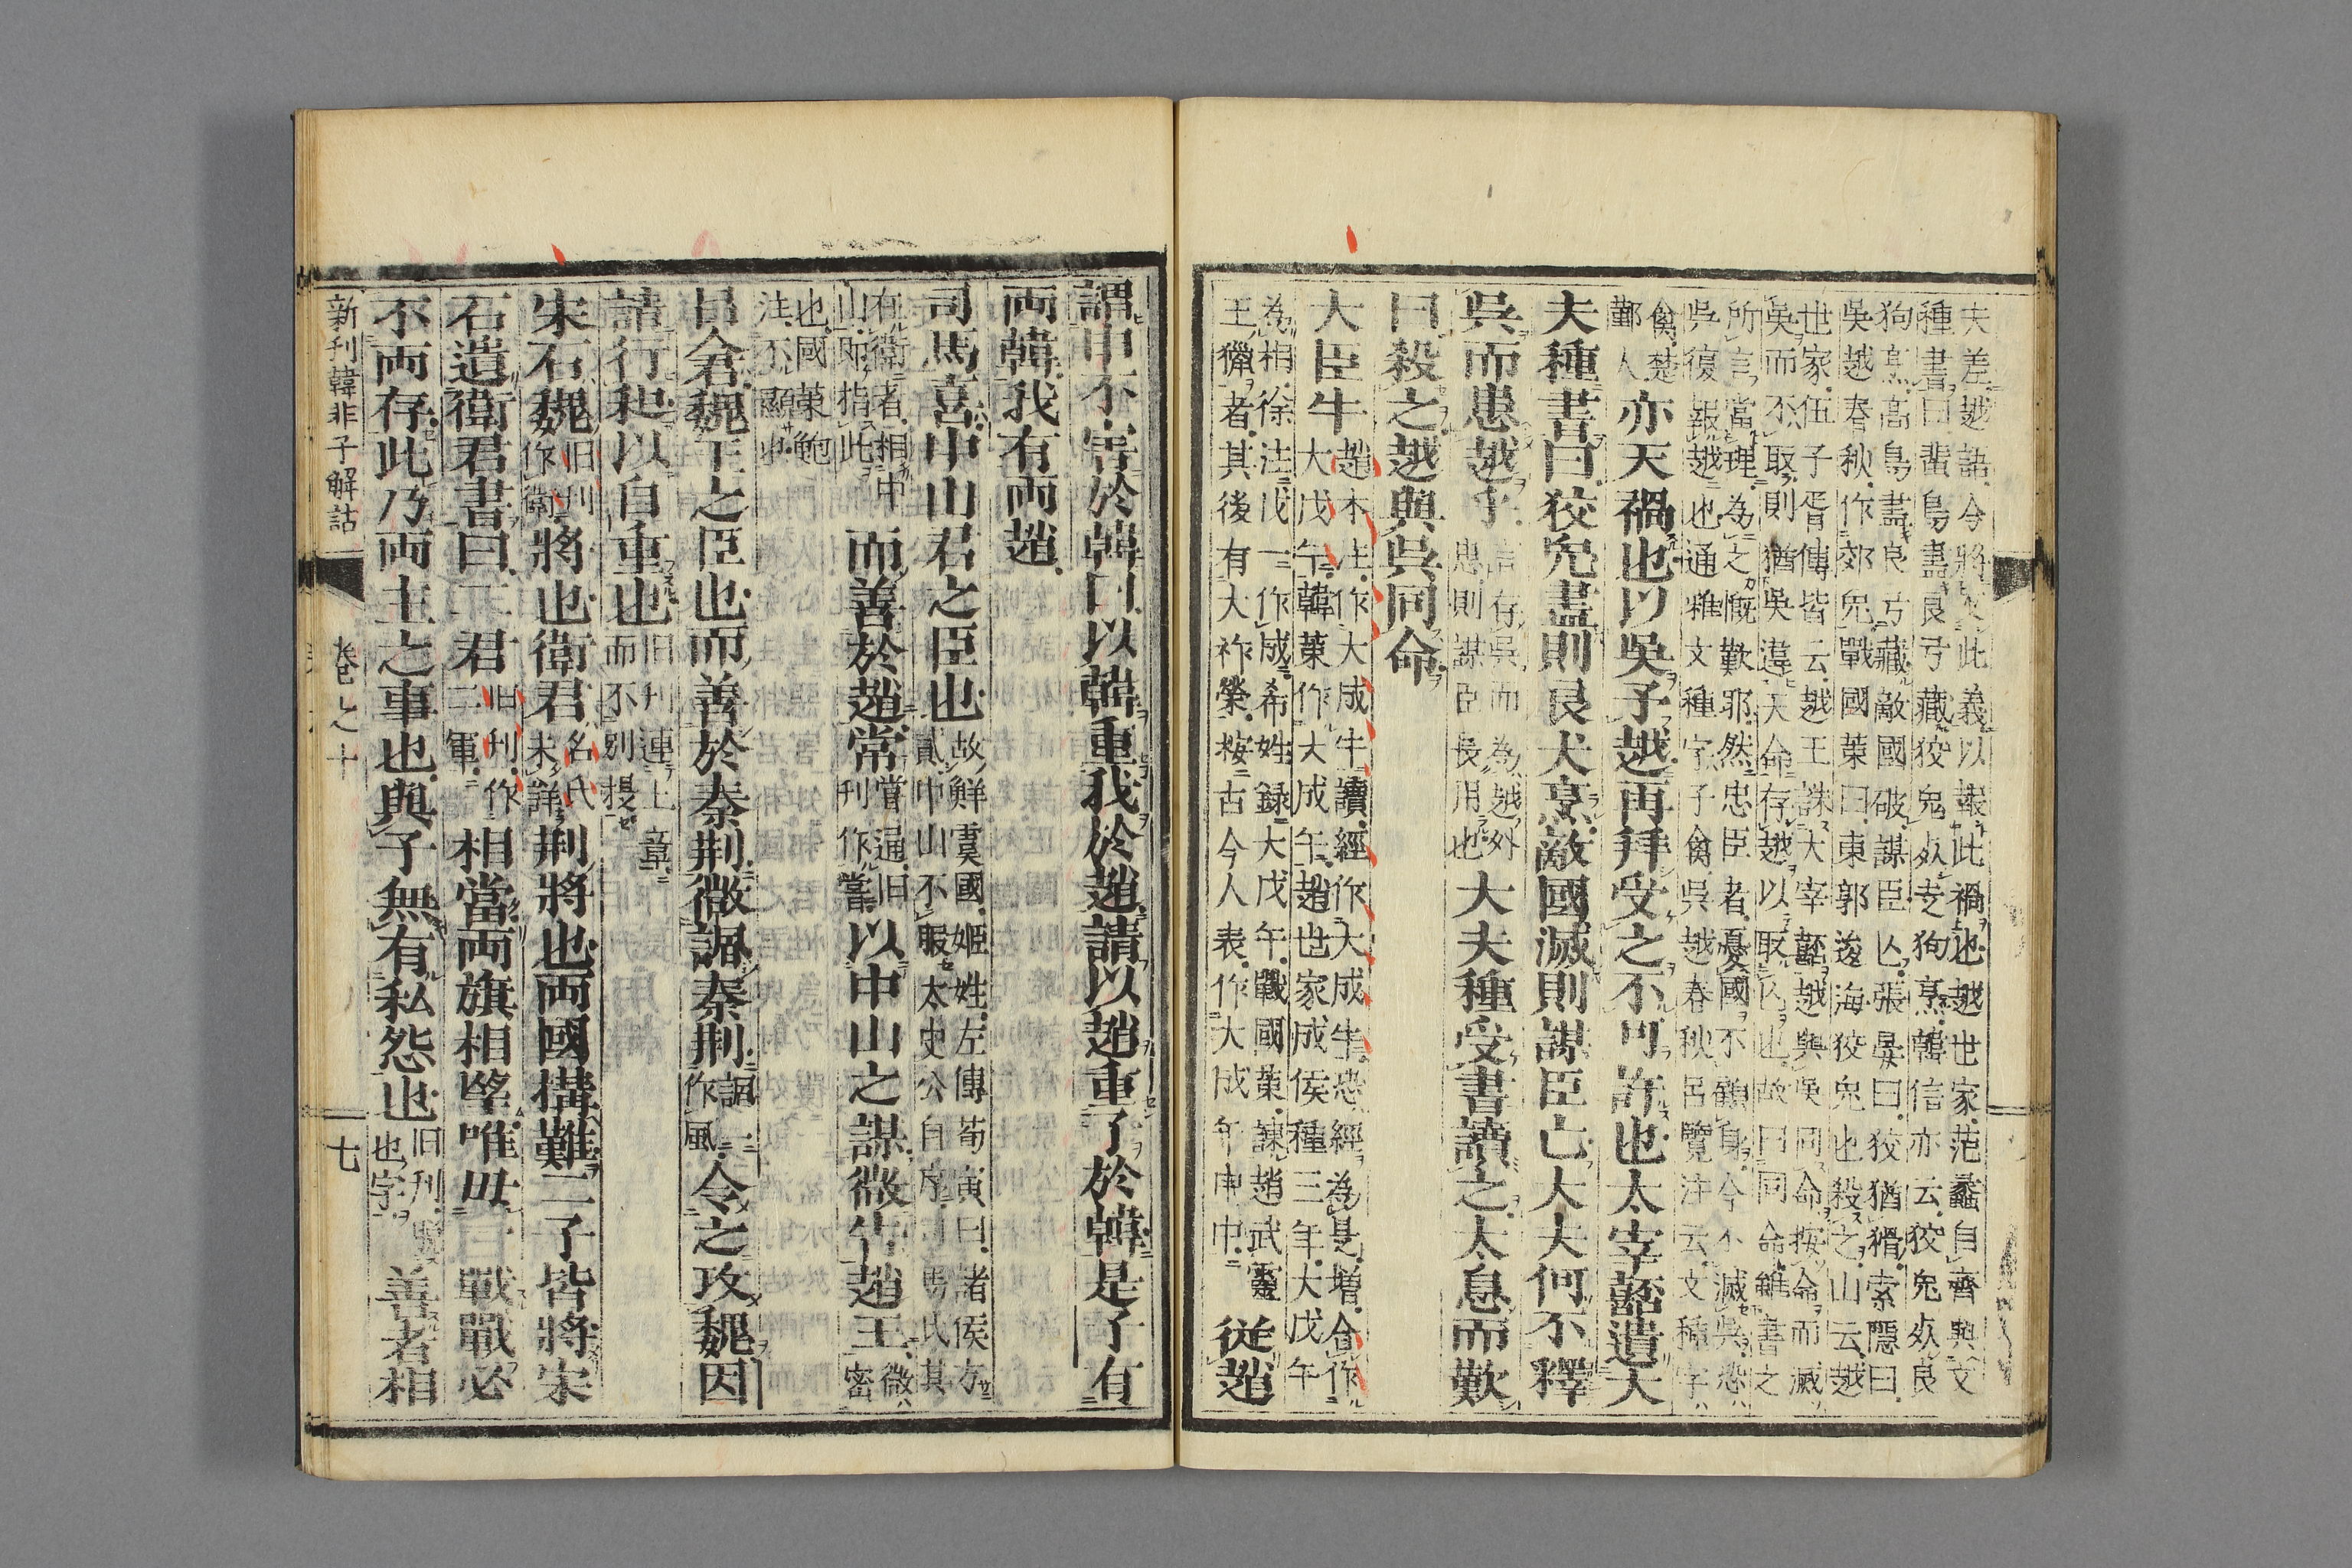 夫差越語今將以此義以報此禍也越世家范蠡自齊與文
種書曰蜚鳥盡良弓藏狡兔死走狗烹韓信亦云狡兔死良
狗烹高鳥盡良弓藏敵國破謀臣亡張晏曰狡猶猾索隱曰
吳越春秋作郊兔戰國策曰東郭逡海狡兔也殺之山云越
世家伍子胥傳皆云越王誅大宰嚭越與吳同命按命而滅
吳而不取則猶吳違天命存越以取亡也故曰同命雖書之
所言當理為之慨歎耶然忠臣者憂國不顧身今不滅吳恐
吳復報越也通雅文種字子禽吳越春秋呂覽注云文種字
禽楚
鄞人
亦天禍也以吳予越再拜受之不可許也太宰嚭遺大
夫種書曰狡兔盡則良犬烹敵國滅則謀臣亡大夫何不釋
吳而患越乎
言存吳而為越外
患則謀臣長用也
大夫種受書讀之太息而歎
曰殺之越與吳同命
大臣牛
趙本注作大成牛讀經作大成牛恐經為是增仝作
大戊午韓策作大成午趙世家成侯種三年大戊午
為相徐注戊一作成希姓錄大戊午戰國策諫趙武靈
王獵者其後有大祚榮按古今人表作大成午申中
従趙
謂申不害於韓曰以韓重我於趙請以趙重子於韓是子有
両韓我有両趙
司馬喜中山君之臣也
故鮮虞國姬姓左傳荀寅曰諸侯方
貳中山不服太史公自序司馬氏其
在衛者相中
山即指此
而善於趙常
嘗通旧
刊作嘗
以中山之謀微告趙王
微
密
也國策鮑
注不顯也
呂倉魏王之臣也而善於秦荆微諷秦荆
諷一
作風
令之攻魏因
請行和以自重也
旧刊連上章
而不別提
宋石魏
旧刊
作衛
將也衛君
名氏
未詳
荆將也両國搆難二子皆將宋
石遺衛君書曰二君
旧刊作
二軍
相當両旗相望唯毋一戰戰必
不両存此乃両主之事也與子無有私怨也
旧刊脱
也字
善者相
新刊韓非子解詁
卷之十
七